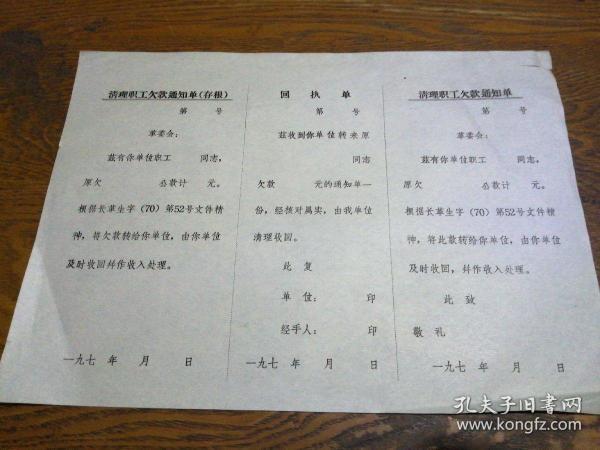 清理职工欠款通知单(存根)
第 号
革委会:
兹有你单位职工 同志,
原欠 公款计 元。
根据长革生字(70)第52号文件精
神,将欠款转给你单位,由你单位
及时收回并作收入处理。
一九七 年 月 日
回 执 单
第 号
兹收到你单位转来原
同志
欠款 元的通知单一
份,经核对属实,由我单位
清理收回。
此 复
单 位: 印
经手人: 印
一九七 年 月 日
清理职工欠款通知单
第 号
革委会:
兹有你单位职工 同志,
原欠 公款计 元。
根据长革生字(70)第52号文件精
神,将此款转给你单位,由你单位
及时收回,并作收入处理。
此 致
敬 礼
一九七 年 月 日
孔夫子旧书网
www.kongfz.com